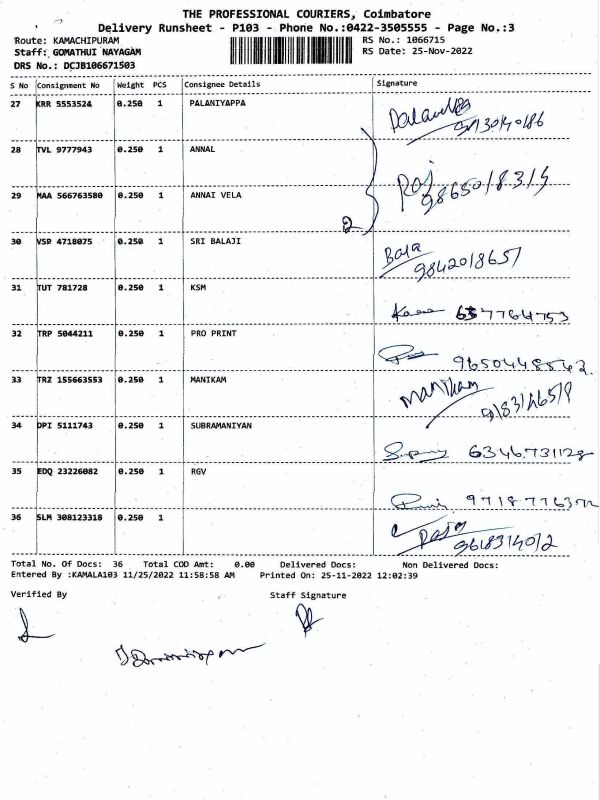 THE PROFESSIONAL COURIERS, Coimbatore
Delivery Runsheet - P103 - Phone No.:0422-3505555 - Page No.:3
Route: KAMACHIPURAM RS No.: 1066715
Staff: GOMATHUI NAYAGAM RS Date: 25-Nov-2022
DRS No.: DCJB106671503
S No Consignment No Weight PCS Consignee Details Signature
27 KRR 5553524 0.250 1 PALANIYAPPA
28 TVL 9777943 0.250 1 ANNAL
29 MAA 566763580 0.250 1 ANNAI VELA Raj 9865018315
2
30 VSP 4718075 0.250 1 SRI BALAJI Bala
9842018657
31 TUT 781728 0.250 1 KSM 6377764753
32 TRP 5044211 0.250 1 PRO PRINT
9650448542
33 TRZ 155663553 0.250 1 MANIKAM Manikam
34 DPI 5111743 0.250 1 SUBRAMANIYAN
6346731128
35 EDQ 23226082 0.250 1 RGV
9718776372
36 SLM 308123318 0.250 1
9618314012
Total No. Of Docs: 36 Total COD Amt: 0.00 Delivered Docs: Non Delivered Docs:
Entered By :KAMALA103 11/25/2022 11:58:58 AM Printed On: 25-11-2022 12:02:39
Verified By Staff Signature